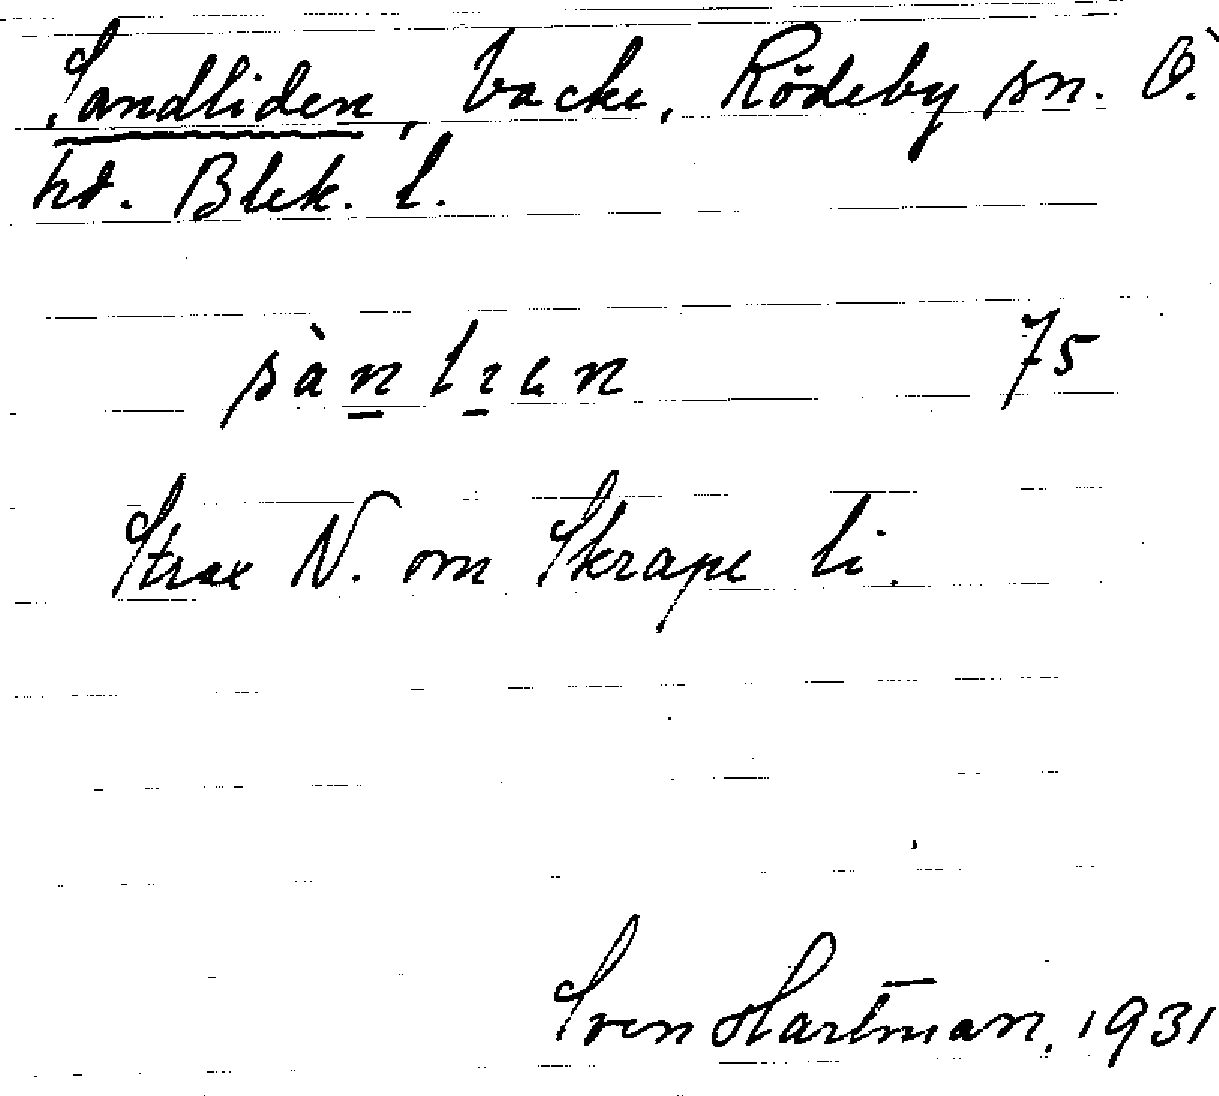 Sandliden, backe, Rödeby sn. Ö.
hd. Blek. l.
sàn lıen 75
Strax N. om Skrape li.
Sven Hartman. 1931